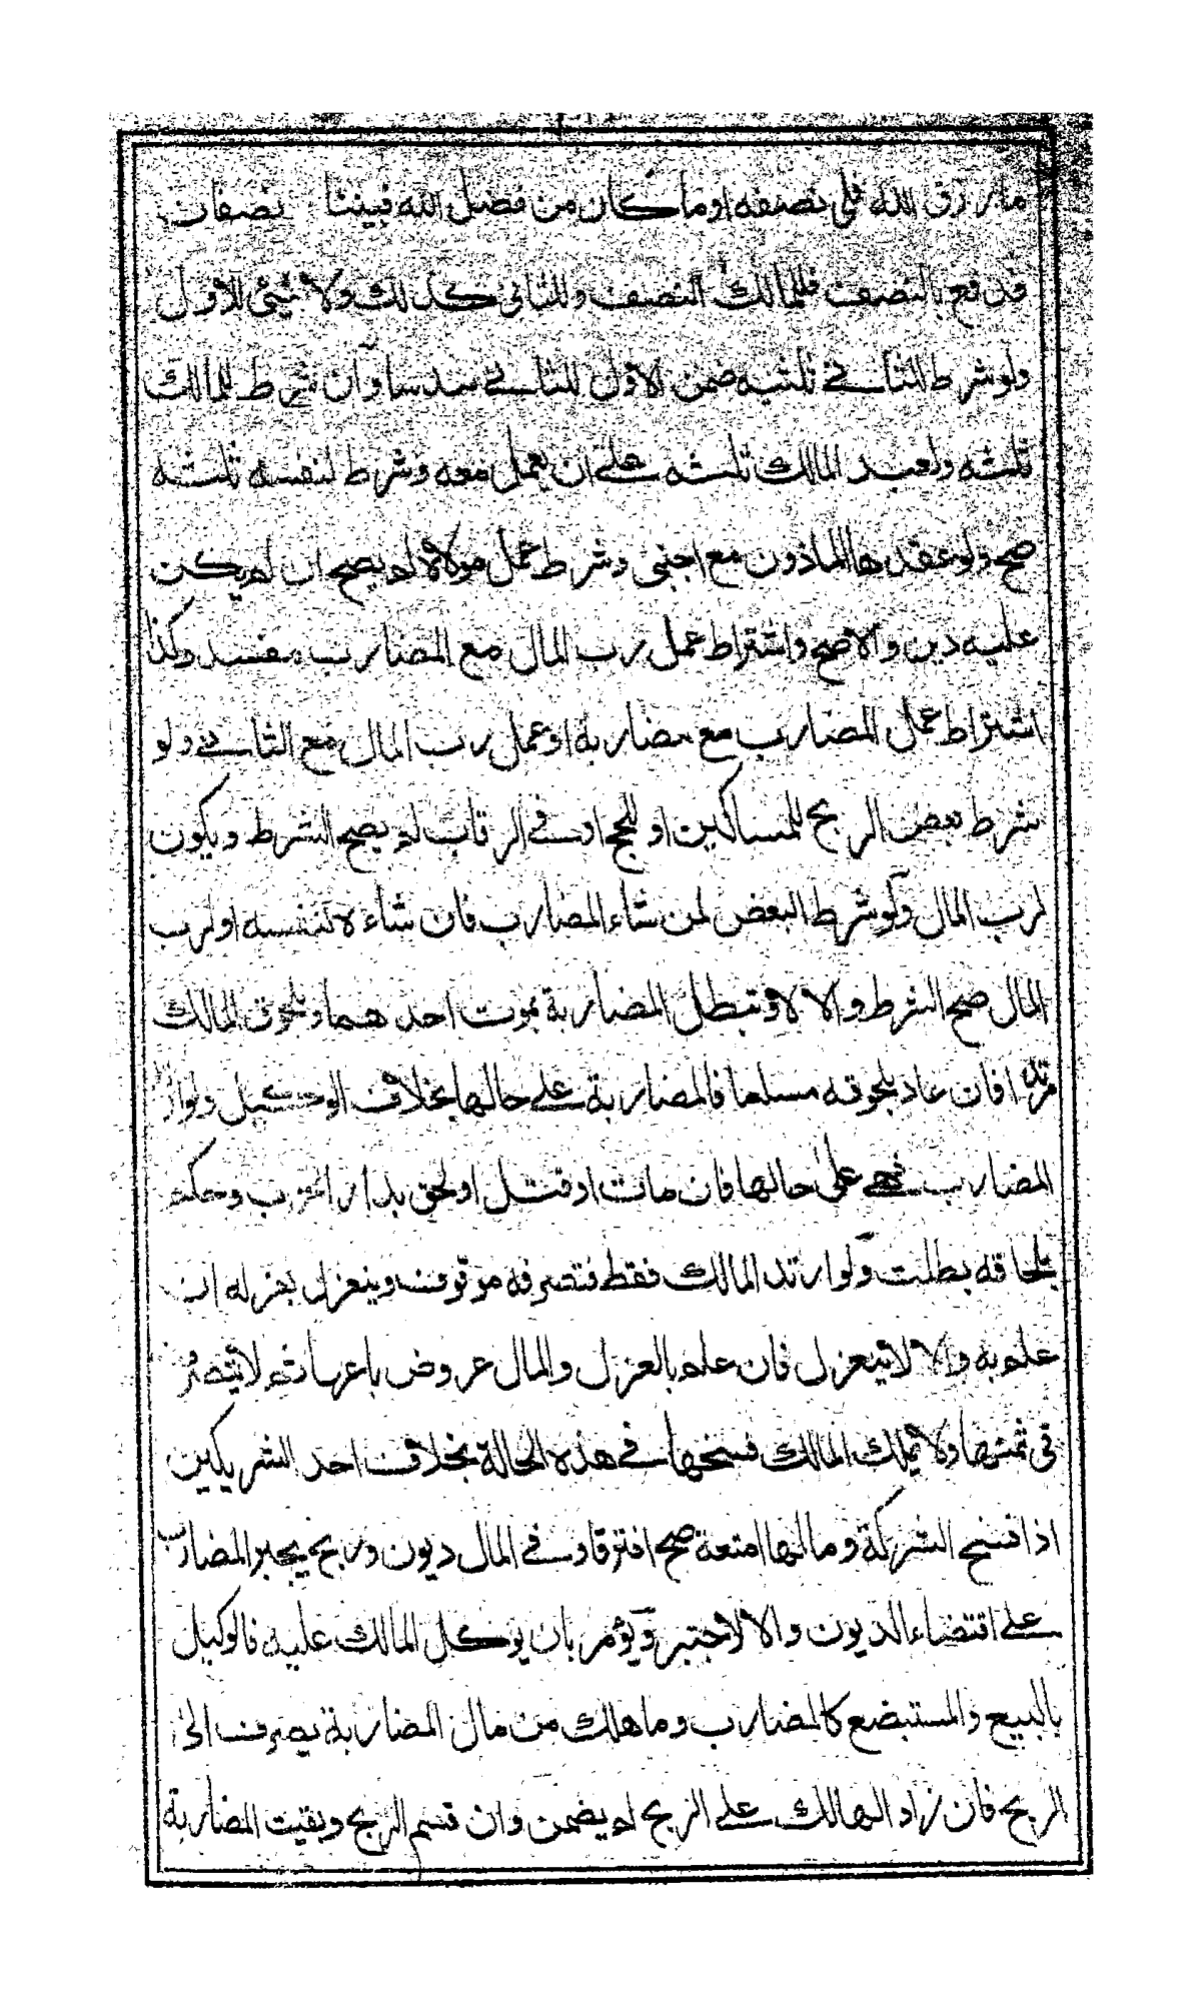 ما رزق الله فلي نصفه او ما كان من فضل الله فبيننا نصفان
فدفع بالنصف فللمالك النصف وللثاني كذلك ولا شيئ للاول
ولو شرط للثاني ثلثيه ضمن الاول للثاني سدسا وان شرط للمالك
ثلثه ولعبد المالك ثلثه على ان يعمل معه وشرط لنفسه ثلثه
صح ولو عقدها الماذون مع اجنبي وشرط عمل مولاه لم يصح ان لم يكن
عليه دين والا صح واشتراط عمل رب المال مع المضارب مفسد وكذا
اشتراط عمل المضارب مع مضاربه او عمل رب المال مع الثاني ولو
شرط بعض الربح للمساكين او للحج او في الرقاب لم يصح الشرط ويكون
لرب المال ولو شرط البعض لمن شاء المضارب فان شاءه لنفسه او لرب
المال صح الشرط والا لا وتبطل المضاربة بموت احدهما وبلحوق المالك
مرتدا فان عاد بلحوقه مسلما فالمضاربة على حالها بخلاف الوكيل ولو ارتد
المضارب فهي على حالها فان مات او قتل او لحق بدار الحرب وحكم
بلحاقه بطلت ولو ارتد المالك فقط فتصرفه موقوف وينعزل بعزله ان
علم به والا لا ينعزل فان علم بالعزل والمال عروض باعها ثم لا يتصرف
في ثمنها ولا يملك المالك فسخها في هذه الحالة بخلاف احد الشريكين
اذا فسخ الشركة ومالها امتعة صح افترقا وفي المال ديون وربح يجبر المضارب
على اقتضاء الديون والا لا جبر ويؤمر بان يوكل المالك عليه فالوكيل
بالبيع والمستبضع كالمضارب وما هلك من مال المضاربة يصرف الى
الربح فان زاد الهالك على الربح لم يضمن وان قسم الربح وبقيت المضاربة